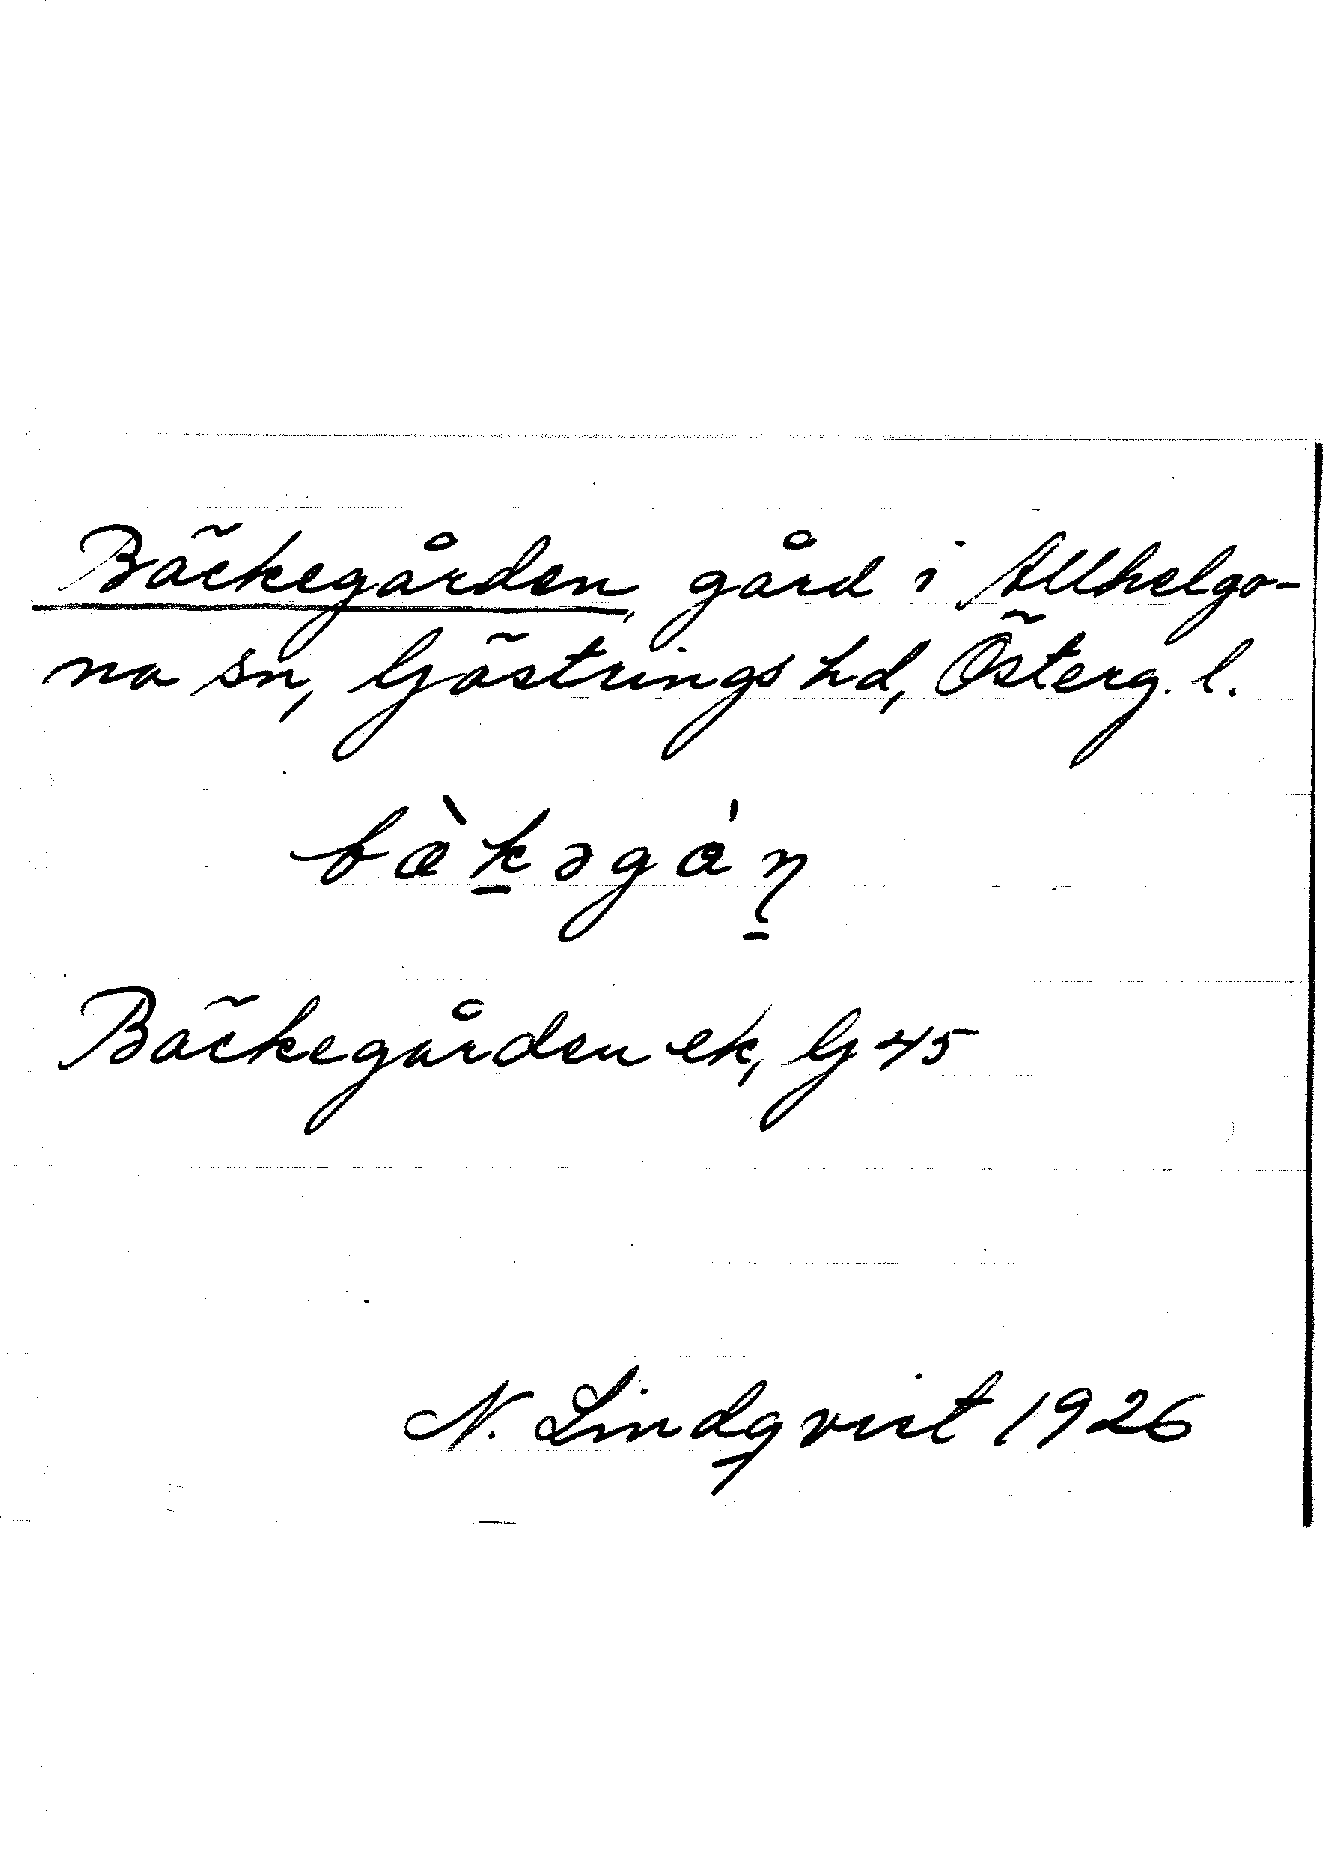 Bäckegården, gård i Allhelgo-
na sn, Göstrings hd, Österg. l.
bæ̀k̲əgɑ̍ɳ̲
Bäckegården ek, G 45
N. Lindqvist 1926